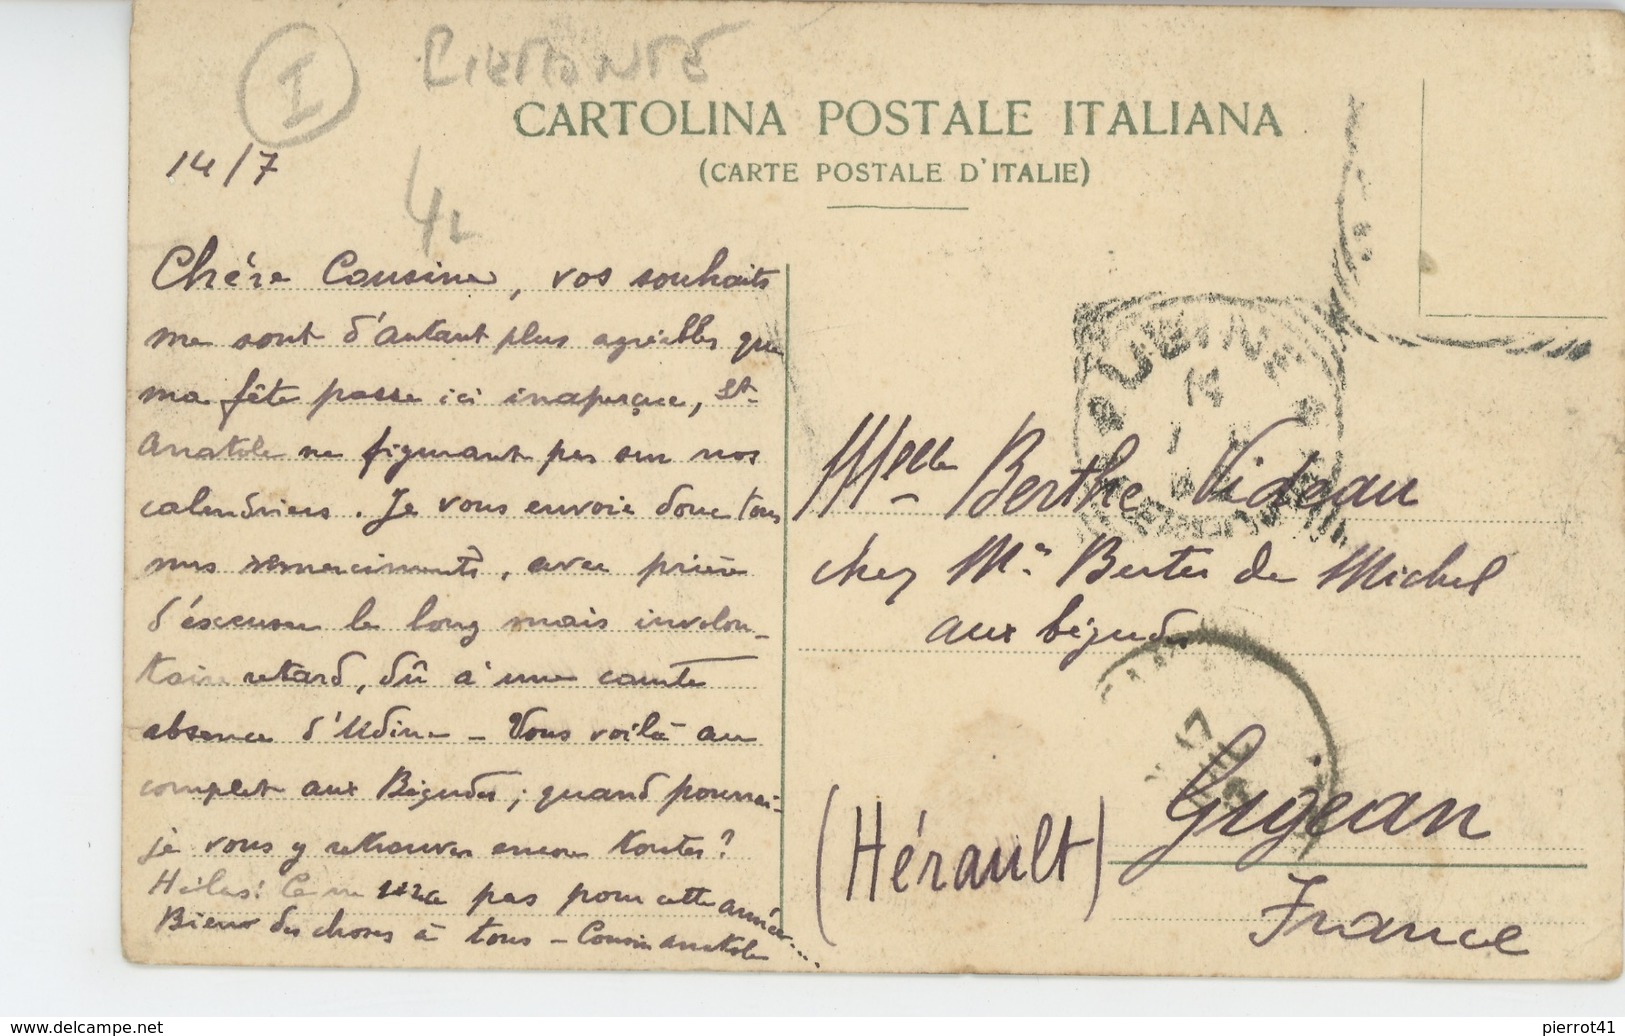 I
PIEMONTE
CARTOLINA POSTALE ITALIANA
(CARTE POSTALE D'ITALIE)
14/7
4L
Chère Cousine, vos souhaits
me sont d'autant plus agréables que
ma fête passe ici inaperçue, St-
Anatole ne figurant pas sur nos
calendriers. Je vous envoie donc tous
mes remerciments, avec prière
d'excuser le long mais involon-
taire retard, dû à une courte
absence d'Udine - Vous voilà au
complet aux Bégudes; quand pourrai-
je vous y retrouver encore toutes?
Hélas! Ce ne sera pas pour cette année....
Bien des choses à tous - Cousin Anatole
UDINE
Melle Berthe Videau
chez Mr Bertes de Michel
aux bégudes
17
Gigean
(Hérault)
France
www.delcampe.net
pierrot41